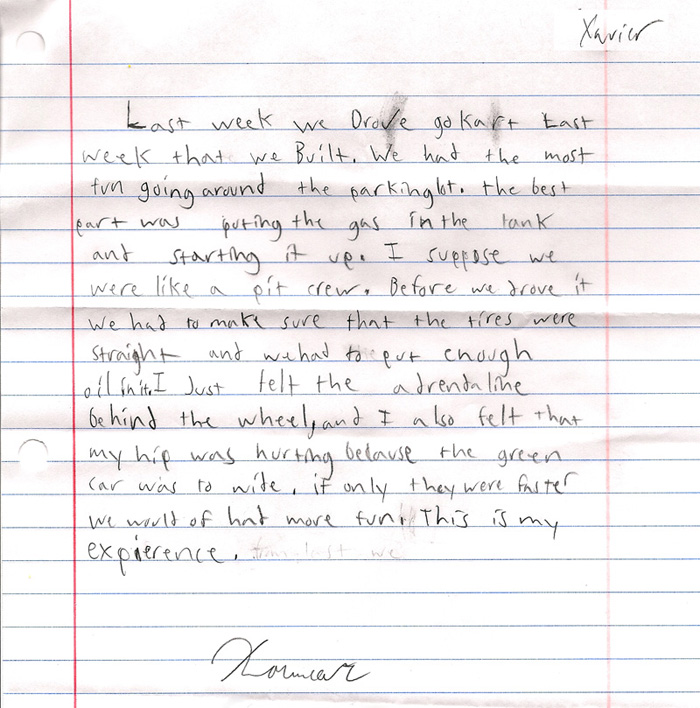 Xavier
Last week we Drove go Kart Last
week that we Built. We had the most
fun going around the parkinglot. the best
part was puting the gas in the tank
and starting it up. I suppose we
were like a pit crew. Before we drove it
we had to make sure that the tires were
straight and we had to put enough
oil in it. I Just felt the adrendaline
behind the wheel, and I also felt that
my hip was hurting because the green
car was to wide, if only they were faster
we would of had more fun. This is my
expierence. from last we